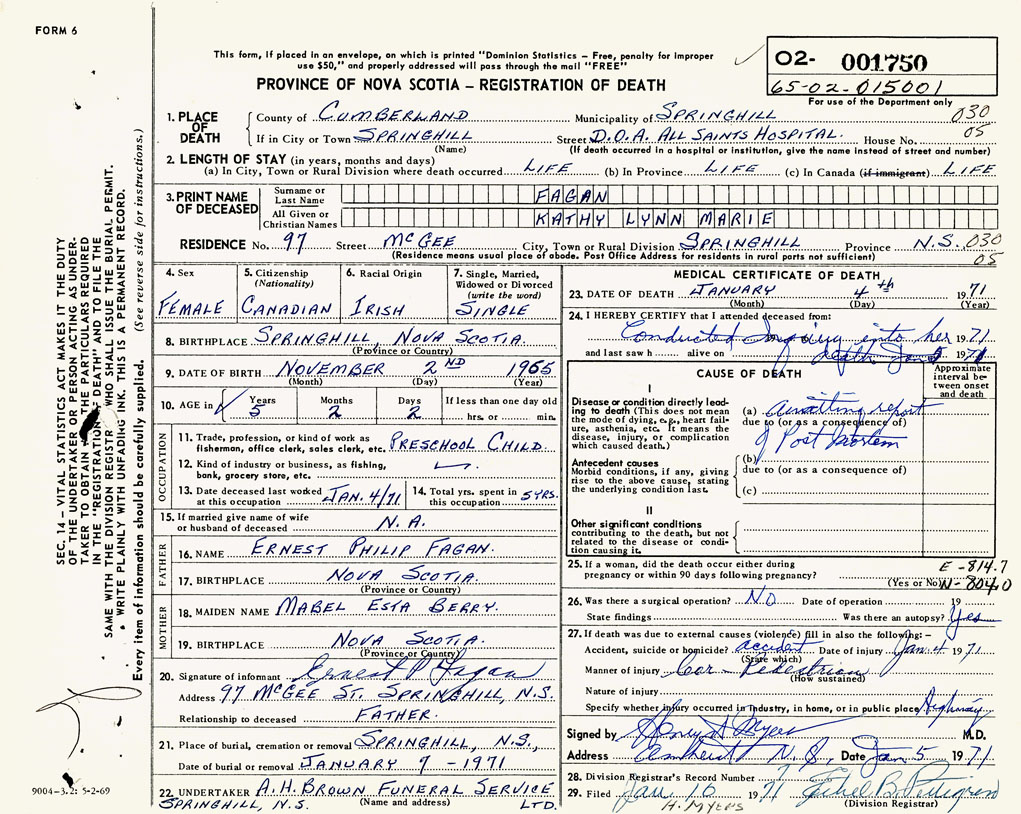 FORM 6
This form, if placed in an envelope, on which is printed "Dominion Statistics – Free, penalty for improper
use $50," and properly addressed will pass through the mail "FREE"
PROVINCE OF NOVA SCOTIA – REGISTRATION OF DEATH
02- 001750
65-02-015001
For use of the Department only
1. PLACE OF DEATH
County of CUMBERLAND Municipality of SPRINGHILL 030
If in City or Town SPRINGHILL Street D.O.A. ALL SAINTS HOSPITAL. House No. 05
(Name) (If death occurred in a hospital or institution, give the name instead of street and number)
2. LENGTH OF STAY (in years, months and days)
(a) In City, Town or Rural Division where death occurred LIFE (b) In Province LIFE (c) In Canada (if immigrant) LIFE
3. PRINT NAME OF DECEASED
Surname or Last Name FAGAN
All Given or Christian Names KATHY LYNN MARIE
RESIDENCE No. 97 Street McGEE City, Town or Rural Division SPRINGHILL Province N.S. 030
(Residence means usual place of abode. Post Office Address for residents in rural ports not sufficient) 05
4. Sex
FEMALE
5. Citizenship (Nationality)
CANADIAN
6. Racial Origin
IRISH
7. Single, Married, Widowed or Divorced (write the word)
SINGLE
8. BIRTHPLACE SPRINGHILL, NOVA SCOTIA.
(Province or Country)
9. DATE OF BIRTH NOVEMBER 2ND 1965
(Month) (Day) (Year)
10. AGE in Years 5 Months 2 Days 2 If less than one day old
hrs. or min.
OCCUPATION
11. Trade, profession, or kind of work as
fisherman, office clerk, sales clerk, etc. PRESCHOOL CHILD.
12. Kind of industry or business, as fishing,
bank, grocery store, etc.
13. Date deceased last worked at this occupation JAN. 4/71
14. Total yrs. spent in this occupation 5 YRS.
15. If married give name of wife
or husband of deceased N.A.
FATHER
16. NAME ERNEST PHILIP FAGAN.
17. BIRTHPLACE NOVA SCOTIA.
(Province or Country)
MOTHER
18. MAIDEN NAME MABEL ESTA BERRY.
19. BIRTHPLACE NOVA SCOTIA.
(Province or Country)
20. Signature of informant Ernest P Fagan
Address 97 McGEE ST. SPRINGHILL, N.S.
Relationship to deceased FATHER.
21. Place of burial, cremation or removal SPRINGHILL, N.S.,
Date of burial or removal JANUARY 7 - 1971
22. UNDERTAKER A.H. BROWN FUNERAL SERVICE
SPRINGHILL, N.S. (Name and address) LTD.
MEDICAL CERTIFICATE OF DEATH
23. DATE OF DEATH JANUARY 4th 1971
(Month) (Day) (Year)
24. I HEREBY CERTIFY that I attended deceased from:
Conducted Inquiry into her 1971
and last saw h alive on death Jan 5 1971
CAUSE OF DEATH
Approximate interval between onset and death
I
Disease or condition directly leading
to death (This does not mean
the mode of dying, e.g., heart failure,
asthenia, etc. It means the
disease, injury, or complication
which caused death.)
(a) Awaiting report
due to (or as a consequence of)
of Post Mortem
Antecedent causes
Morbid conditions, if any, giving
rise to the above cause, stating
the underlying condition last.
(b)
due to (or as a consequence of)
(c)
II
Other significant conditions
contributing to the death, but not
related to the disease or condition
causing it.
25. If a woman, did the death occur either during
pregnancy or within 90 days following pregnancy?
(Yes or No)
E-814.7
N-804.0
26. Was there a surgical operation? NO Date of operation 19
State findings Was there an autopsy? Yes
27. If death was due to external causes (violence) fill in also the following:–
Accident, suicide or homicide? accident Date of injury Jan 4 1971
(State which)
Manner of injury Car - Pedestrian
(How sustained)
Nature of injury
Specify whether injury occurred in industry, in home, or in public place Highway
Signed by Henry A Myers M.D.
Address Amherst N.S. Date Jan 5 1971
28. Division Registrar's Record Number 7
29. Filed Jan 10 1971
H. MYERS (Division Registrar)
SEC. 14 – VITAL STATISTICS ACT MAKES IT THE DUTY
OF THE UNDERTAKER OR PERSON ACTING AS UNDER-
TAKER TO OBTAIN THE PARTICULARS REQUIRED
IN THE "REGISTRATION OF DEATH" AND TO FILE THE
SAME WITH THE DIVISION REGISTRAR WHO SHALL ISSUE THE BURIAL PERMIT.
WRITE PLAINLY WITH UNFADING INK. THIS IS A PERMANENT RECORD.
Every item of information should be carefully supplied. (See reverse side for instructions.)
9004-3.2: 5-2-69